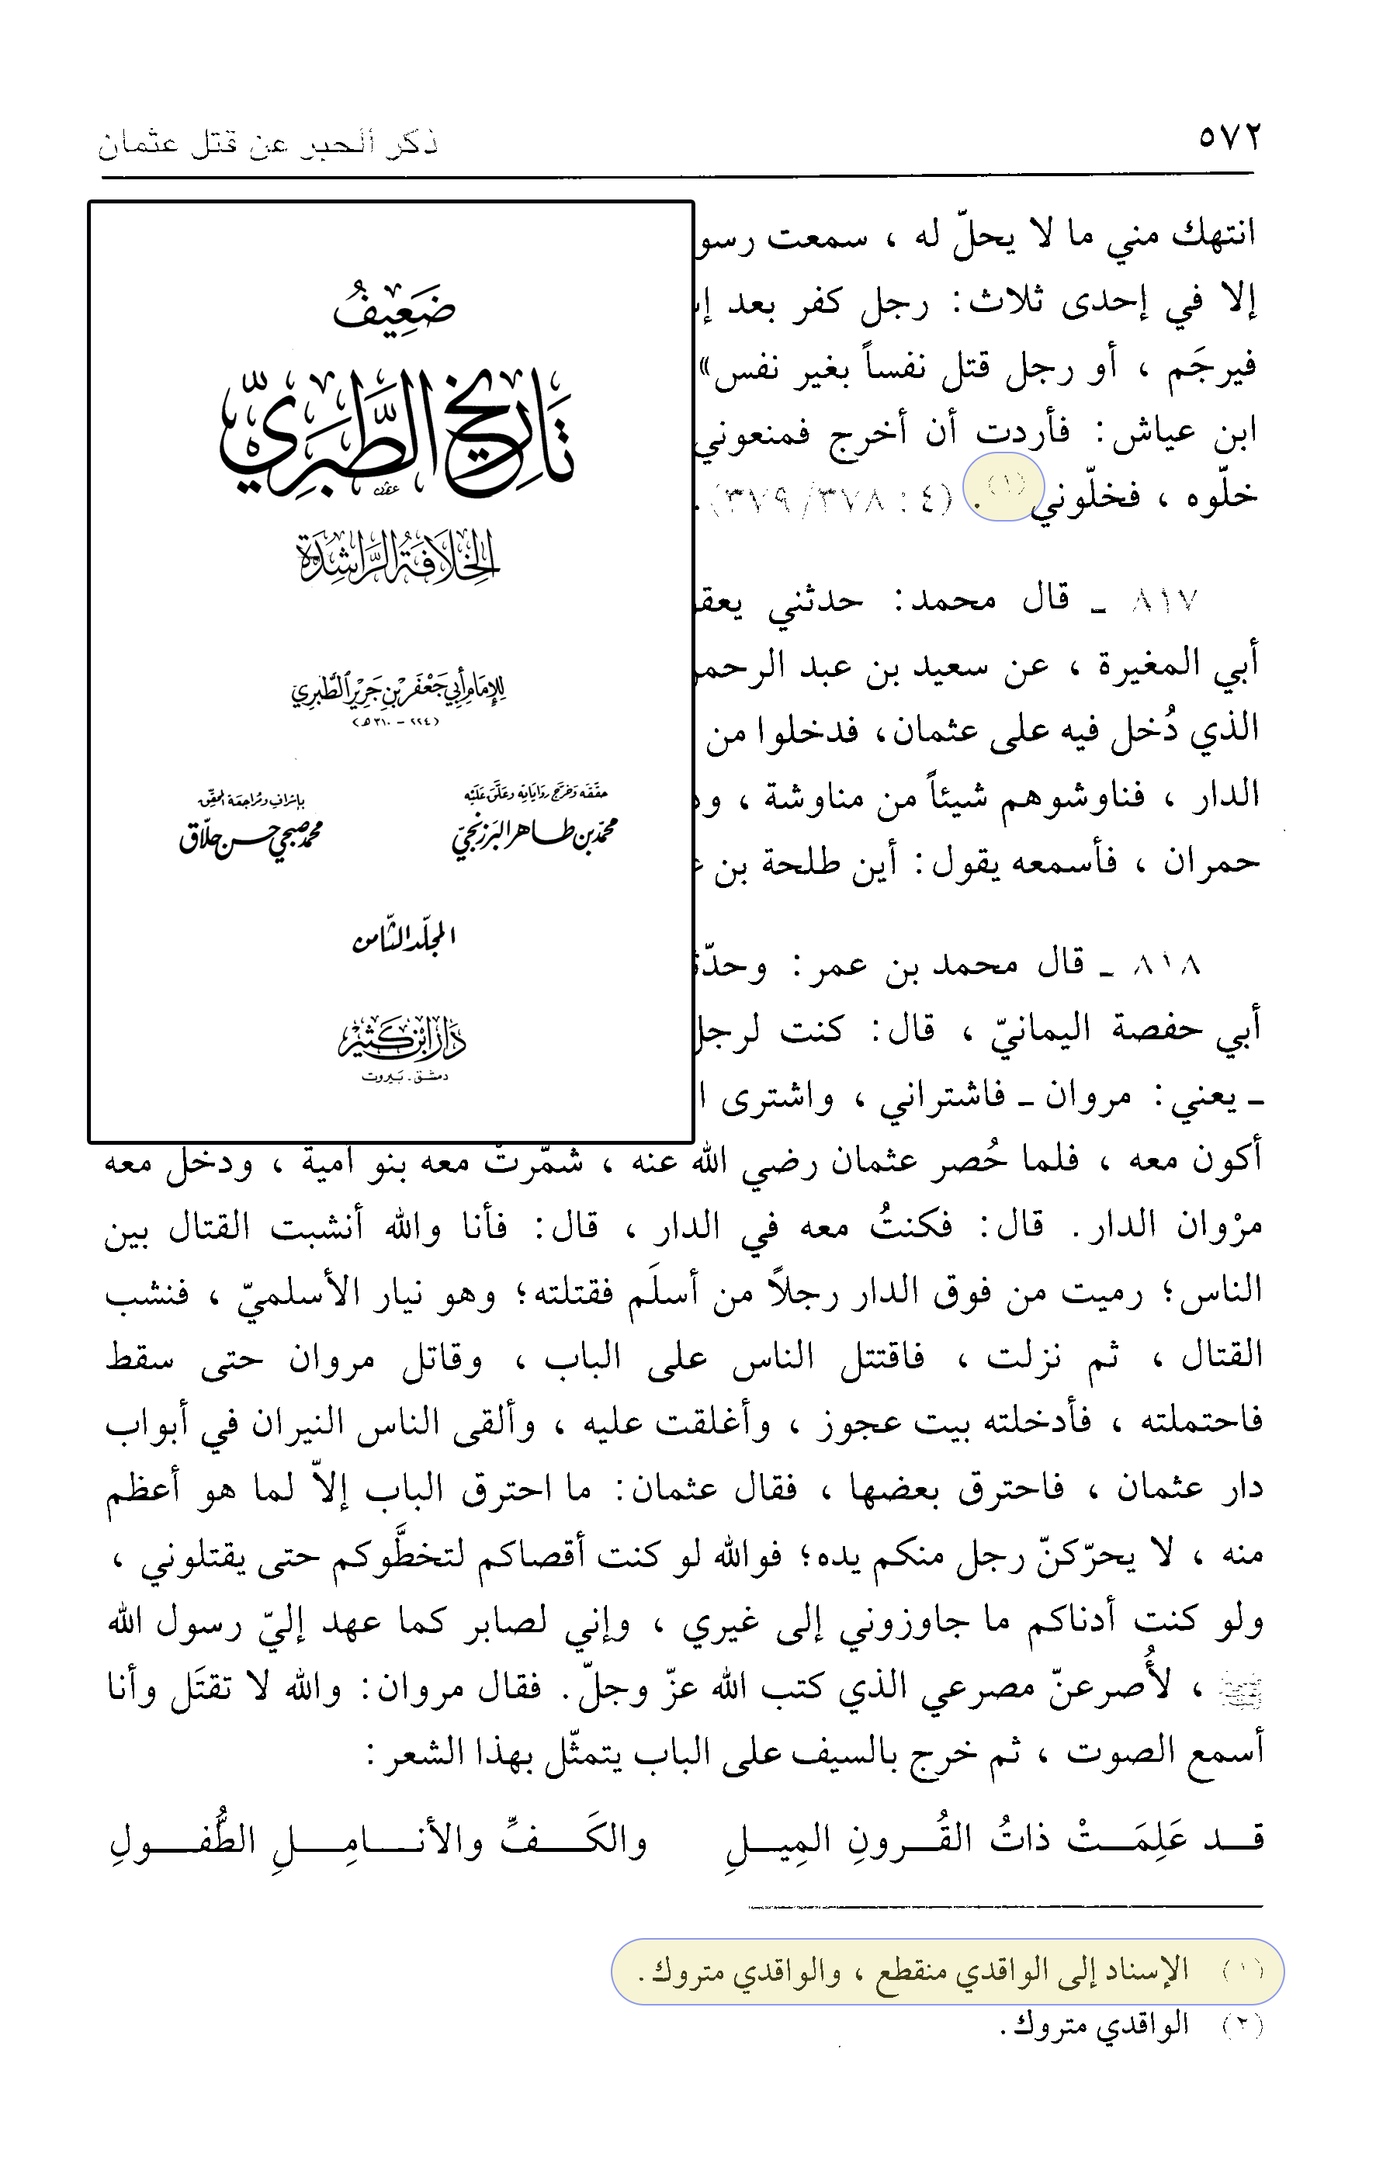 ٥٧٢
ذكر الخبر عن قتل عثمان
انتهك مني ما لا يحلّ له ، سمعت رسو
إلا في إحدى ثلاث: رجل كفر بعد
فيرجَم ، أو رجل قتل نفساً بغير نفس»
ابن عياش: فأردت أن أخرج فمنعوني
خلّوه ، فخلّوني(١). (٤ : ٣٧٨/ ٣٧٩).
٨١٧ ـ قال محمد: حدثني يعقو
أبي المغيرة ، عن سعيد بن عبد الرحمن
الذي دُخل فيه على عثمان، فدخلوا من
الدار ، فناوشوهم شيئاً من مناوشة ،
حمران ، فأسمعه يقول: أين طلحة بن
٨١٨ ـ قال محمد بن عمر: وحدّث
أبي حفصة اليمانيّ ، قال: كنت لرجل
ـ يعني: مروان ـ فاشتراني ، واشترى ا
أكون معه ، فلما حُصر عثمان رضي الله عنه ، شمّرتْ معه بنو أمية ، ودخل معه
مرْوان الدار. قال: فكنتُ معه في الدار ، قال: فأنا والله أنشبت القتال بين
الناس؛ رميت من فوق الدار رجلاً من أسلَم فقتلته؛ وهو نيار الأسلميّ ، فنشب
القتال ، ثم نزلت ، فاقتتل الناس على الباب ، وقاتل مروان حتى سقط
فاحتملته ، فأدخلته بيت عجوز ، وأغلقت عليه ، وألقى الناس النيران في أبواب
دار عثمان ، فاحترق بعضها ، فقال عثمان: ما احترق الباب إلاّ لما هو أعظم
منه ، لا يحرّكنّ رجل منكم يده؛ فوالله لو كنت أقصاكم لتخطَّوكم حتى يقتلوني ،
ولو كنت أدناكم ما جاوزوني إلى غيري ، وإني لصابر كما عهد إليّ رسول الله
ﷺ ، لأُصرعنّ مصرعي الذي كتب الله عزّ وجلّ. فقال مروان: والله لا تقتَل وأنا
أسمع الصوت ، ثم خرج بالسيف على الباب يتمثّل بهذا الشعر:
قـد عَلِمَـتْ ذاتُ القُـرونِ المِيـلِ والكَـفِّ والأنـامِـلِ الطُّفـولِ
(١) الإسناد إلى الواقدي منقطع ، والواقدي متروك.
(٢) الواقدي متروك.
ضَعِيفُ
تَارِيخِ الطَّبَرِيّ
الخِلَافَةُ الرَّاشِدَة
لِلإِمَامِ أَبِي جَعْفَر بْنِ جَرِيْرٍ الطَّبَرِي
(٢٢٤ - ٣١٠ هـ)
حقّقه وَخرّج روَاياته وعَلّق عَليْه
محمّد بن طاهر البَرزنجيّ
بإشراف ومُراجعَة المحقّق
محمد صبحي حسن حلّاق
المجلّد الثّامن
دَار ابْن كَثِيْر
دمشق - بَيروت